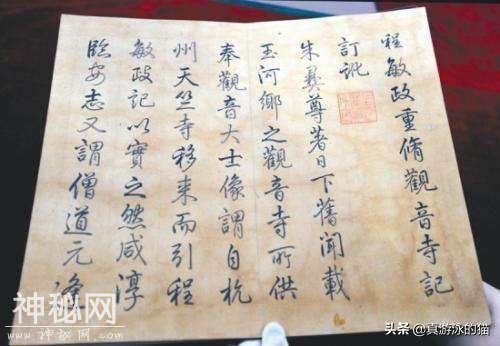 程敏政重脩觀音寺記
訂訛
朱彝尊著日下舊聞載
玉河鄉之觀音寺所供
奉觀音大士像謂自杭
州天竺寺移来而引程
敏政記以實之然咸淳
臨安志又謂僧道元
神秘网
WWW.SHENMIW.COM
头条 @真游泳的猫